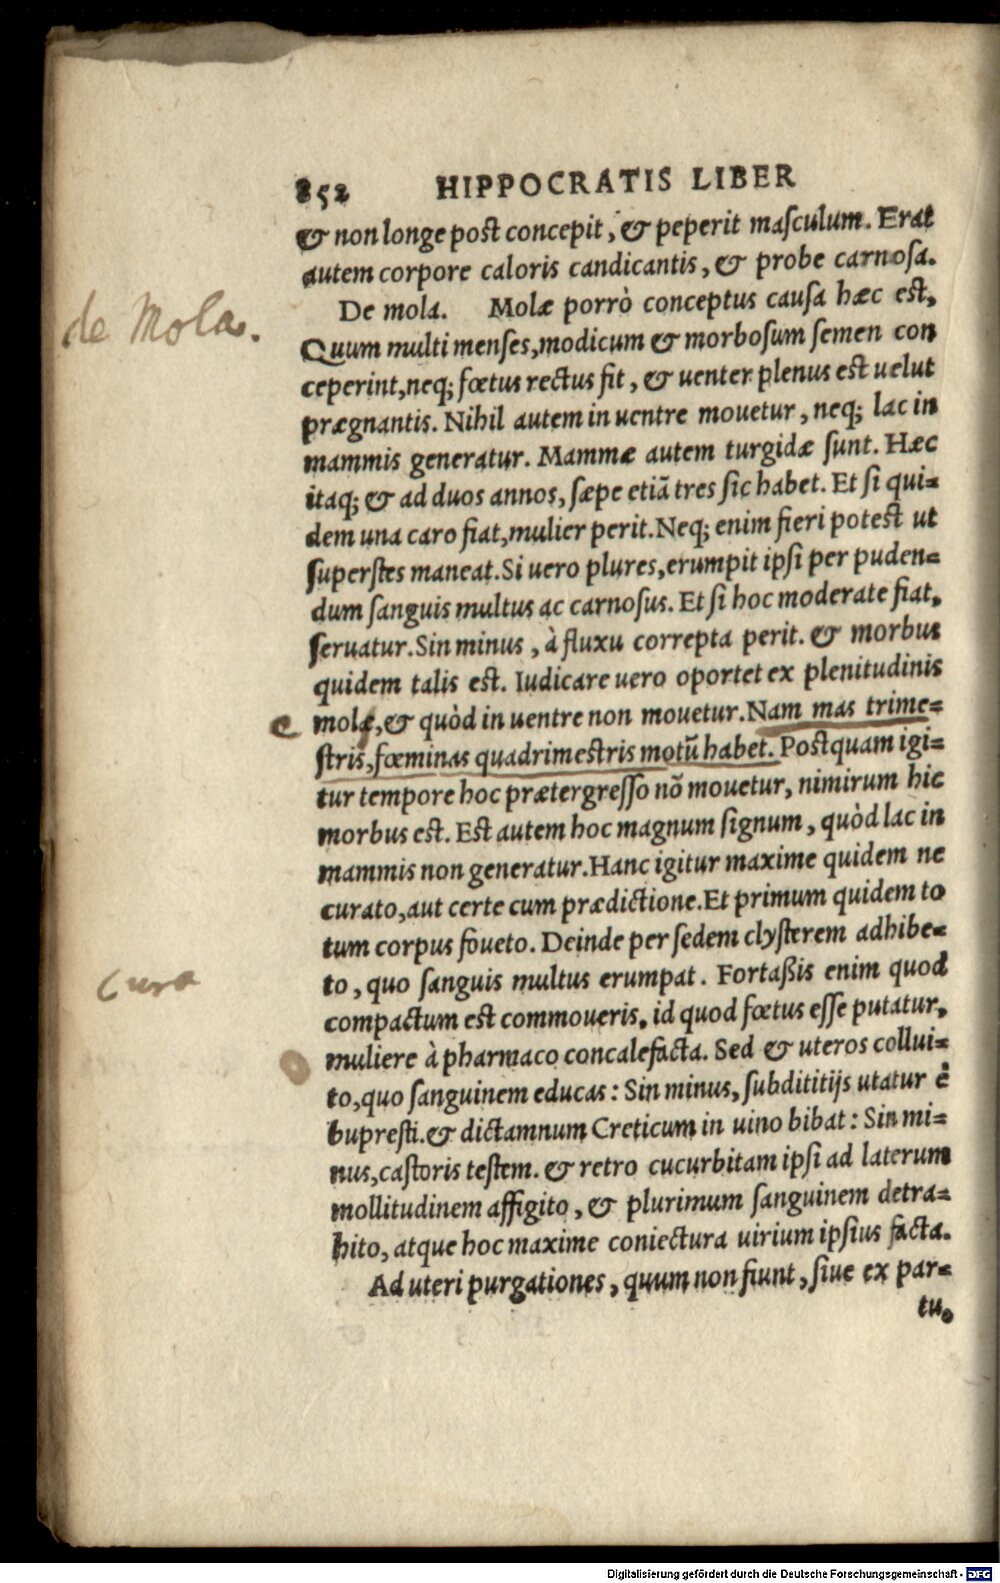 852 HIPPOCRATIS LIBER
& non longe post concepit, & peperit masculum. Erat
autem corpore caloris candicantis, & probe carnosa.
de Mola.
De mola. Molæ porrò conceptus causa hæc est,
Quum multi menses, modicum & morbosum semen con
ceperint, neq; fœtus rectus fit, & uenter plenus est uelut
prægnantis. Nihil autem in uentre mouetur, neq; lac in
mammis generatur. Mammæ autem turgidæ sunt. Hæc
itaq; & ad duos annos, sæpe etiã tres sic habet. Et si qui=
dem una caro fiat, mulier perit. Neq; enim fieri potest ut
superstes maneat. Si uero plures, erumpit ipsi per puden=
dum sanguis multus ac carnosus. Et si hoc moderate fiat,
seruatur. Sin minus, à fluxu correpta perit. & morbus
quidem talis est. Iudicare uero oportet ex plenitudinis
molæ, & quòd in uentre non mouetur. Nam mas trime=
stris, fœminas quadrimestris motũ habet. Postquam igi=
tur tempore hoc prætergresso nõ mouetur, nimirum hic
morbus est. Est autem hoc magnum signum, quòd lac in
mammis non generatur. Hanc igitur maxime quidem ne
curato, aut certe cum prædictione. Et primum quidem to
tum corpus foueto. Deinde per sedem clysterem adhibe=
cura
to, quo sanguis multus erumpat. Fortaßis enim quod
compactum est commoueris, id quod fœtus esse putatur,
muliere à pharmaco concalefacta. Sed & uteros collui=
to, quo sanguinem educas: Sin minus, subdititijs utatur è
bupresti. & dictamnum Creticum in uino bibat: Sin mi=
nus, castoris testem. & retro cucurbitam ipsi ad laterum
mollitudinem affigito, & plurimum sanguinem detra=
hito, atque hoc maxime coniectura uirium ipsius facta.
Ad uteri purgationes, quum non fiunt, siue ex par=
tu,
Digitalisierung gefördert durch die Deutsche Forschungsgemeinschaft - DFG